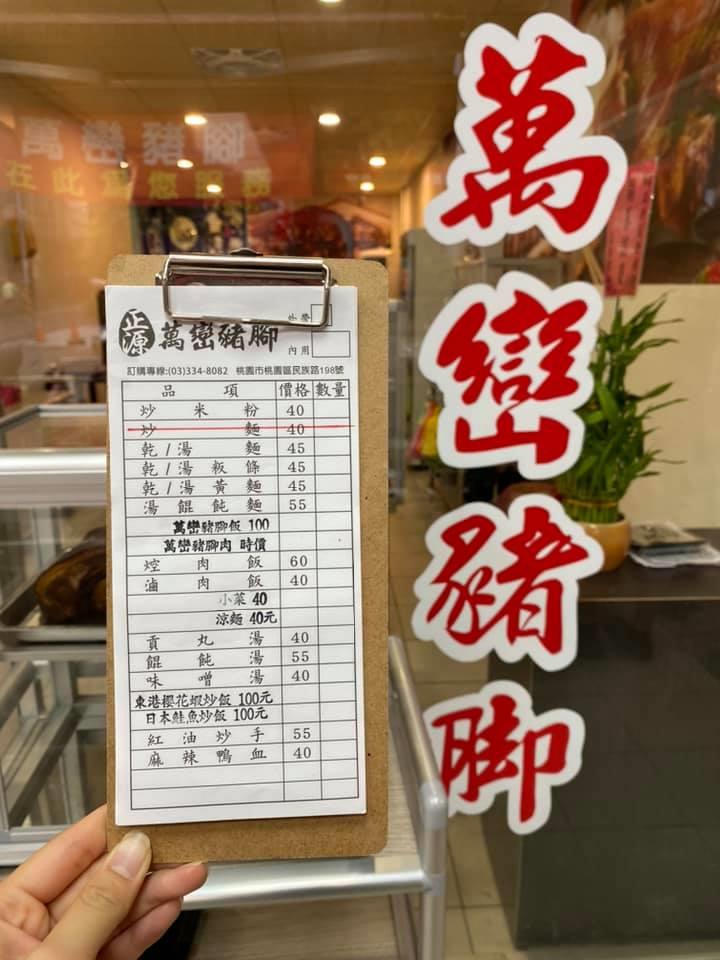 萬巒豬腳
在此為您服務
萬巒豬脚
正源
萬巒豬腳
外帶
內用
訂購專線:(03)334-8082 桃園市桃園區民族路198號
品項 價格 數量
炒米粉 40
炒麵 40
乾/湯麵 45
乾/湯粄條 45
乾/湯黃麵 45
湯餛飩麵 55
萬巒豬腳飯 100
萬巒豬腳肉 時價
焢肉飯 60
滷肉飯 40
小菜 40
涼麵 40元
貢丸湯 40
餛飩湯 55
味噌湯 40
東港櫻花蝦炒飯 100元
日本鮭魚炒飯 100元
紅油炒手 55
麻辣鴨血 40